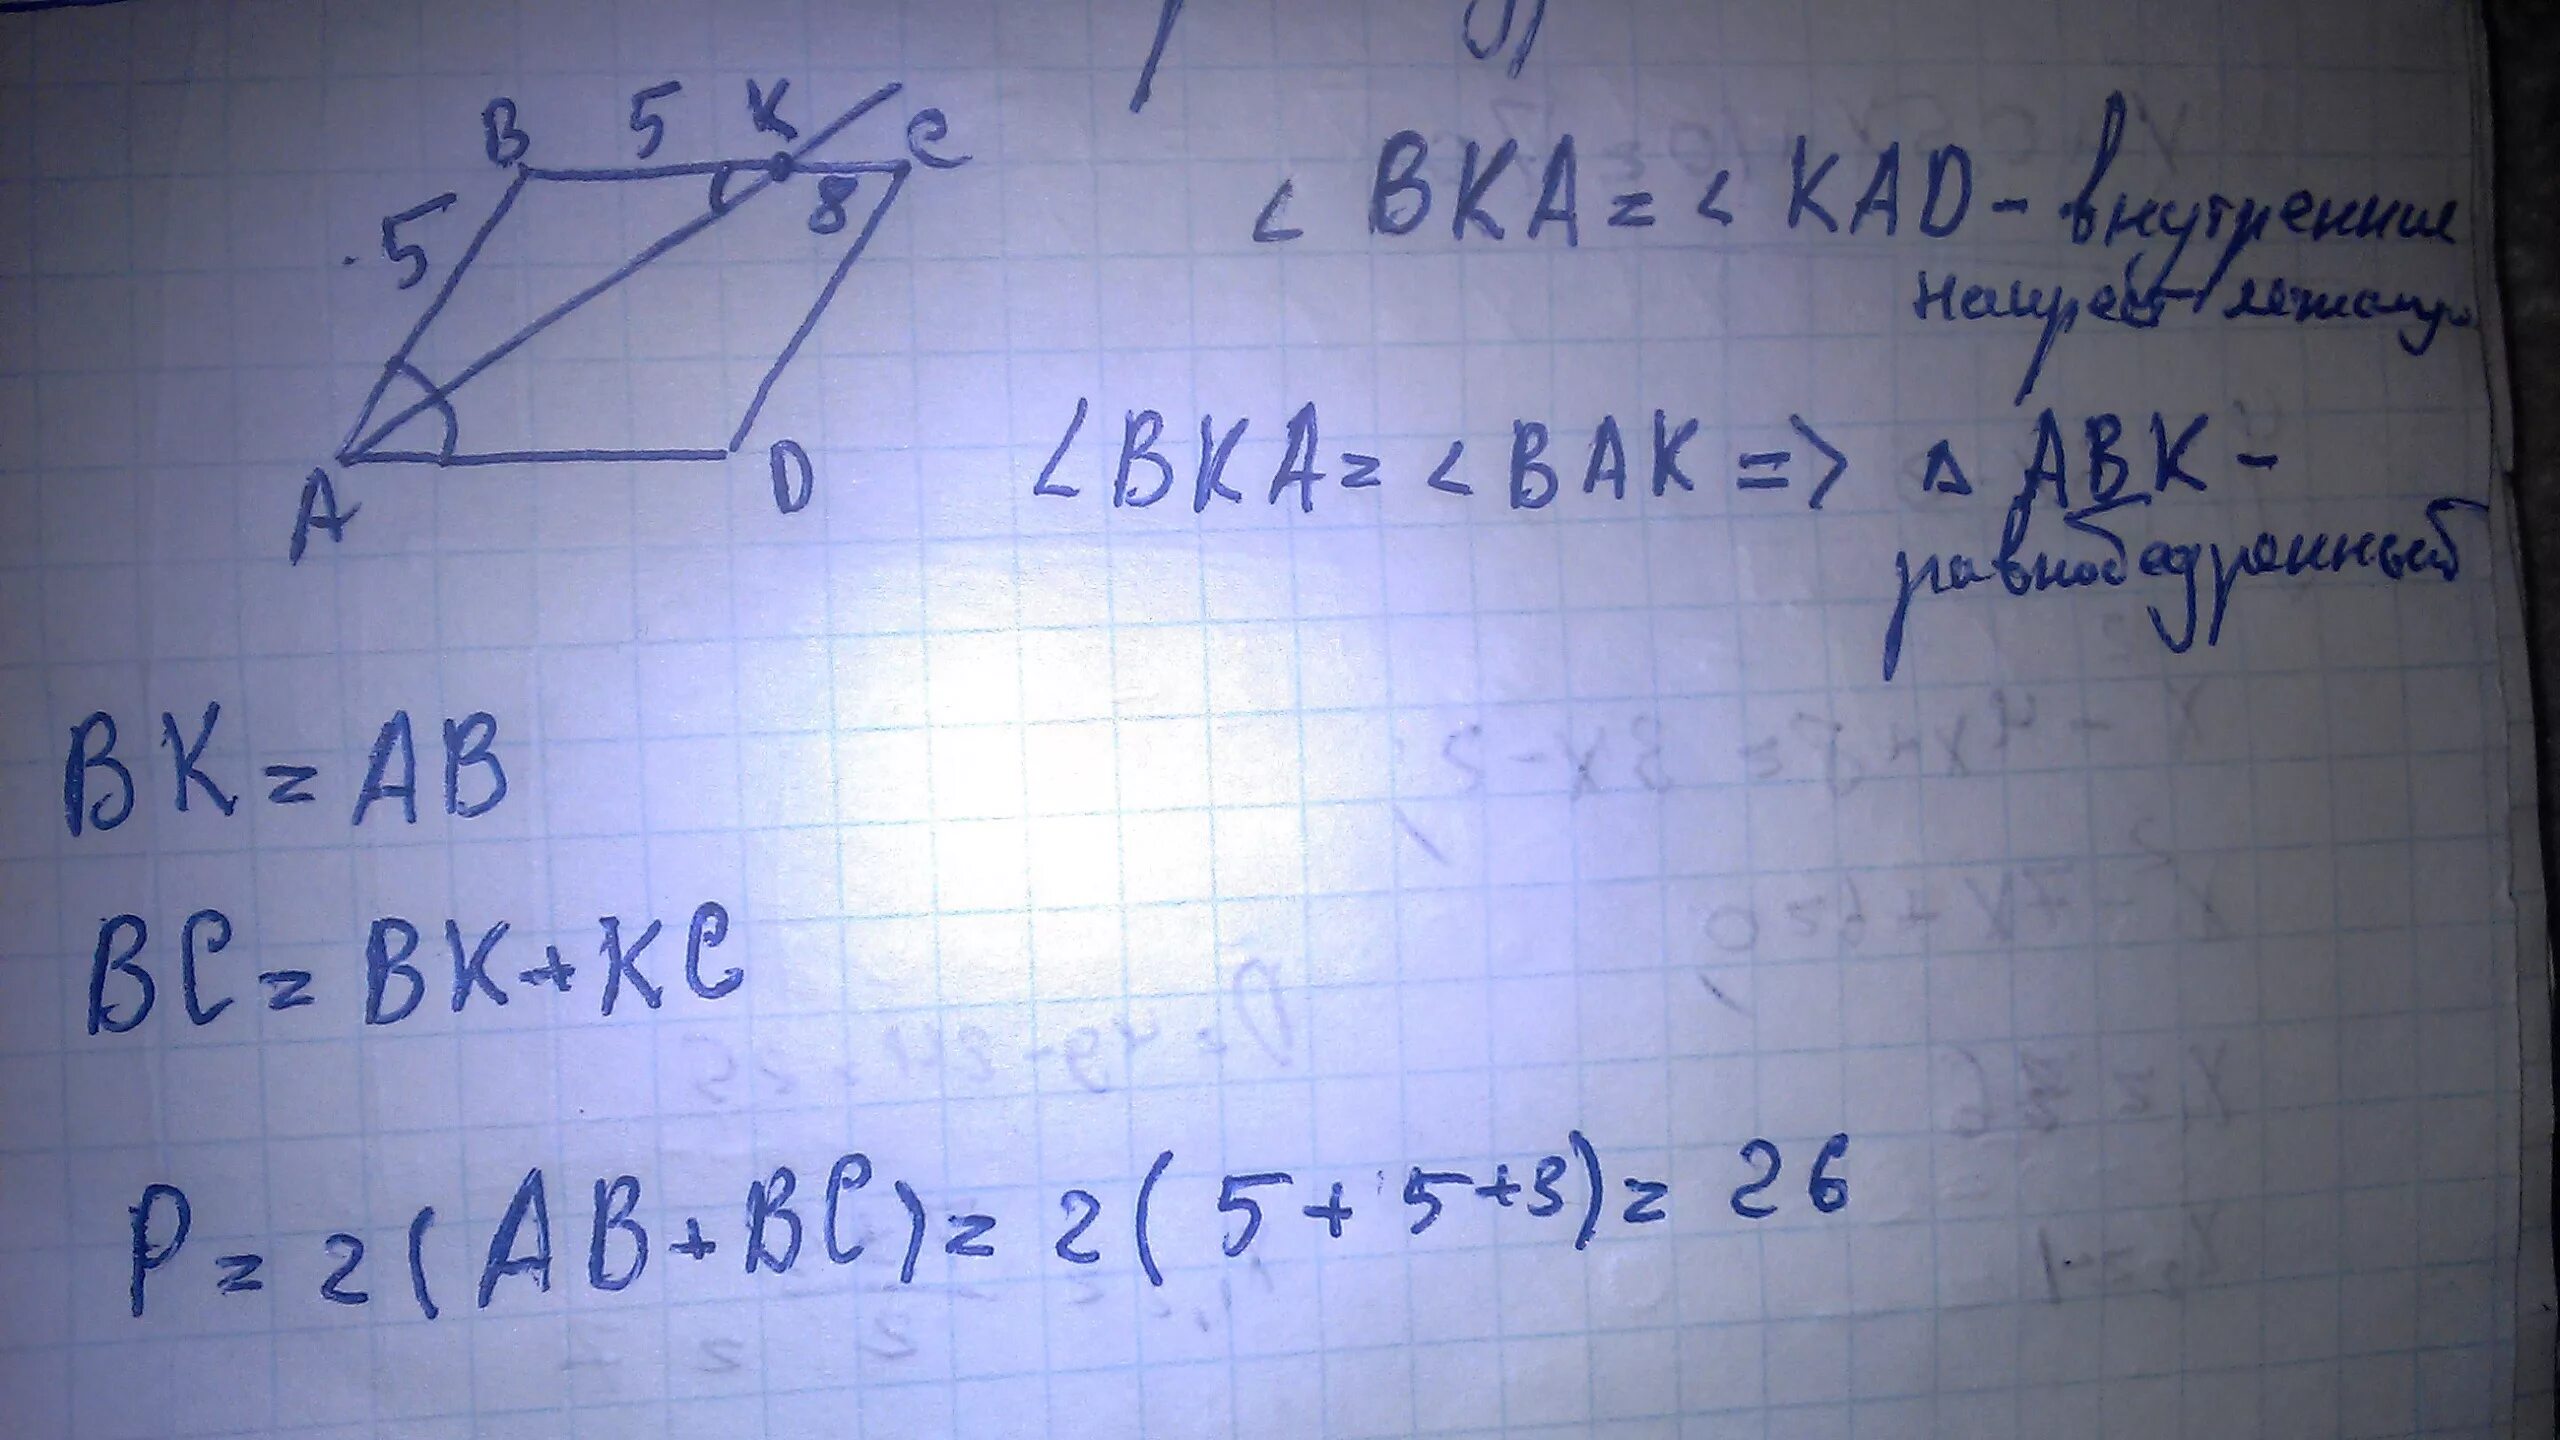 B 5 K C
5 8
A D
< BKA = < KAD - внутренние
накрест лежащие
< BKA = < BAK => △ ABK -
равнобедренный
BK = AB
BC = BK + KC
P = 2 ( AB + BC ) = 2 ( 5 + 5 + 3 ) = 26